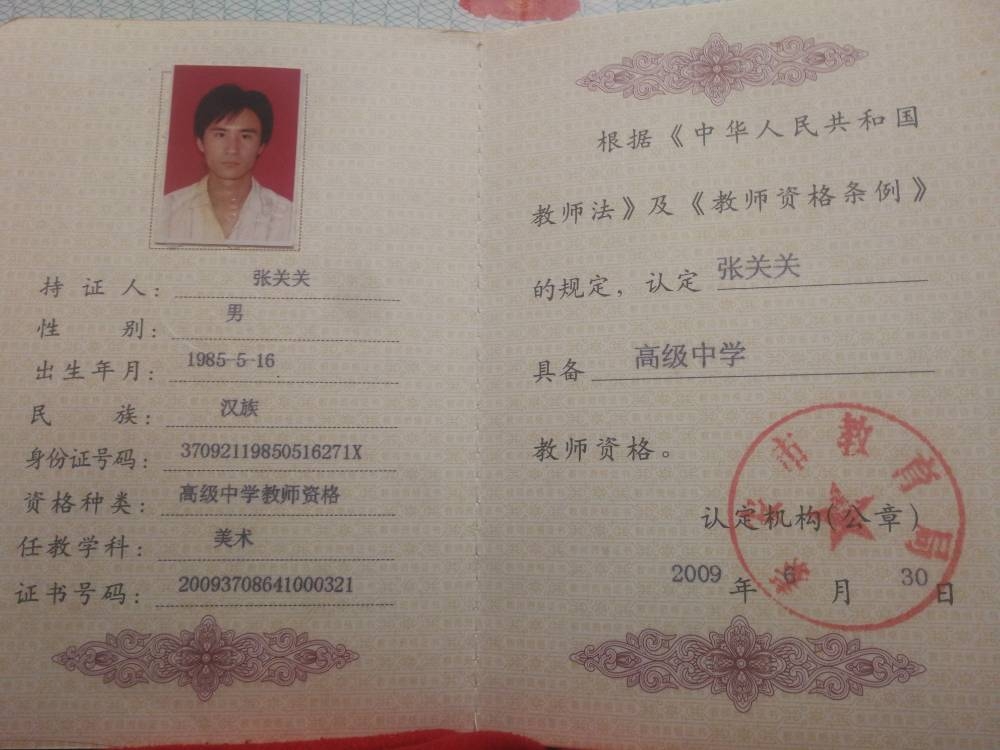 持证人：张关关
性别：男
出生年月：1985-5-16
民族：汉族
身份证号码：37092119850516271X
资格种类：高级中学教师资格
任教学科：美术
证书号码：20093708641000321
根据《中华人民共和国
教师法》及《教师资格条例》
的规定，认定 张关关
具备 高级中学
教师资格。
认定机构(公章)
2009年6月30日
市教育局